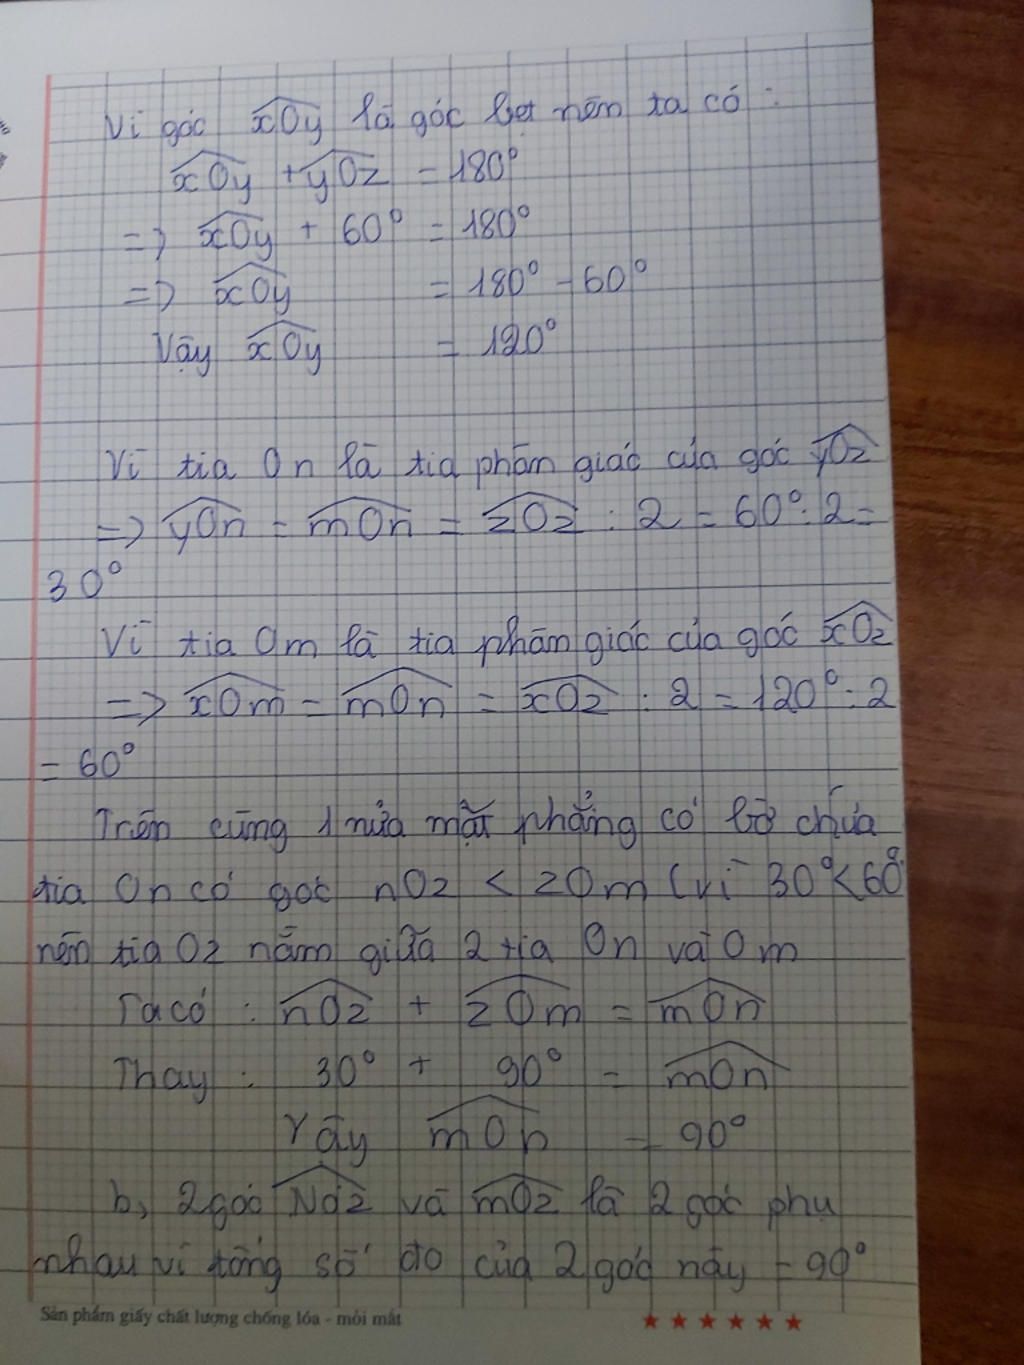 Vì góc xOy là góc bẹt nên ta có :
xOy + yOz = 180°
=> xOy + 60° = 180°
=> xOy = 180° - 60°
Vậy xOy = 120°
Vì tia On là tia phân giác của góc yOz
=> yOn = mOn = zOz : 2 = 60° : 2 =
30°
Vì tia Om là tia phân giác của góc xOz
=> xOm = mOn = xOz : 2 = 120° : 2
= 60°
Trên cùng 1 nửa mặt phẳng có bờ chứa
tia On có góc nOz < zOm (vì 30° < 60°
nên tia Oz nằm giữa 2 tia On và Om
Ta có : nOz + zOm = mOn
Thay : 30° + 90° = mOn
Vậy mOn = 90°
b, 2 góc NOz và mOz là 2 góc phụ
nhau vì tổng số đo của 2 góc này = 90°
Sản phẩm giấy chất lượng chống lóa - mỏi mắt